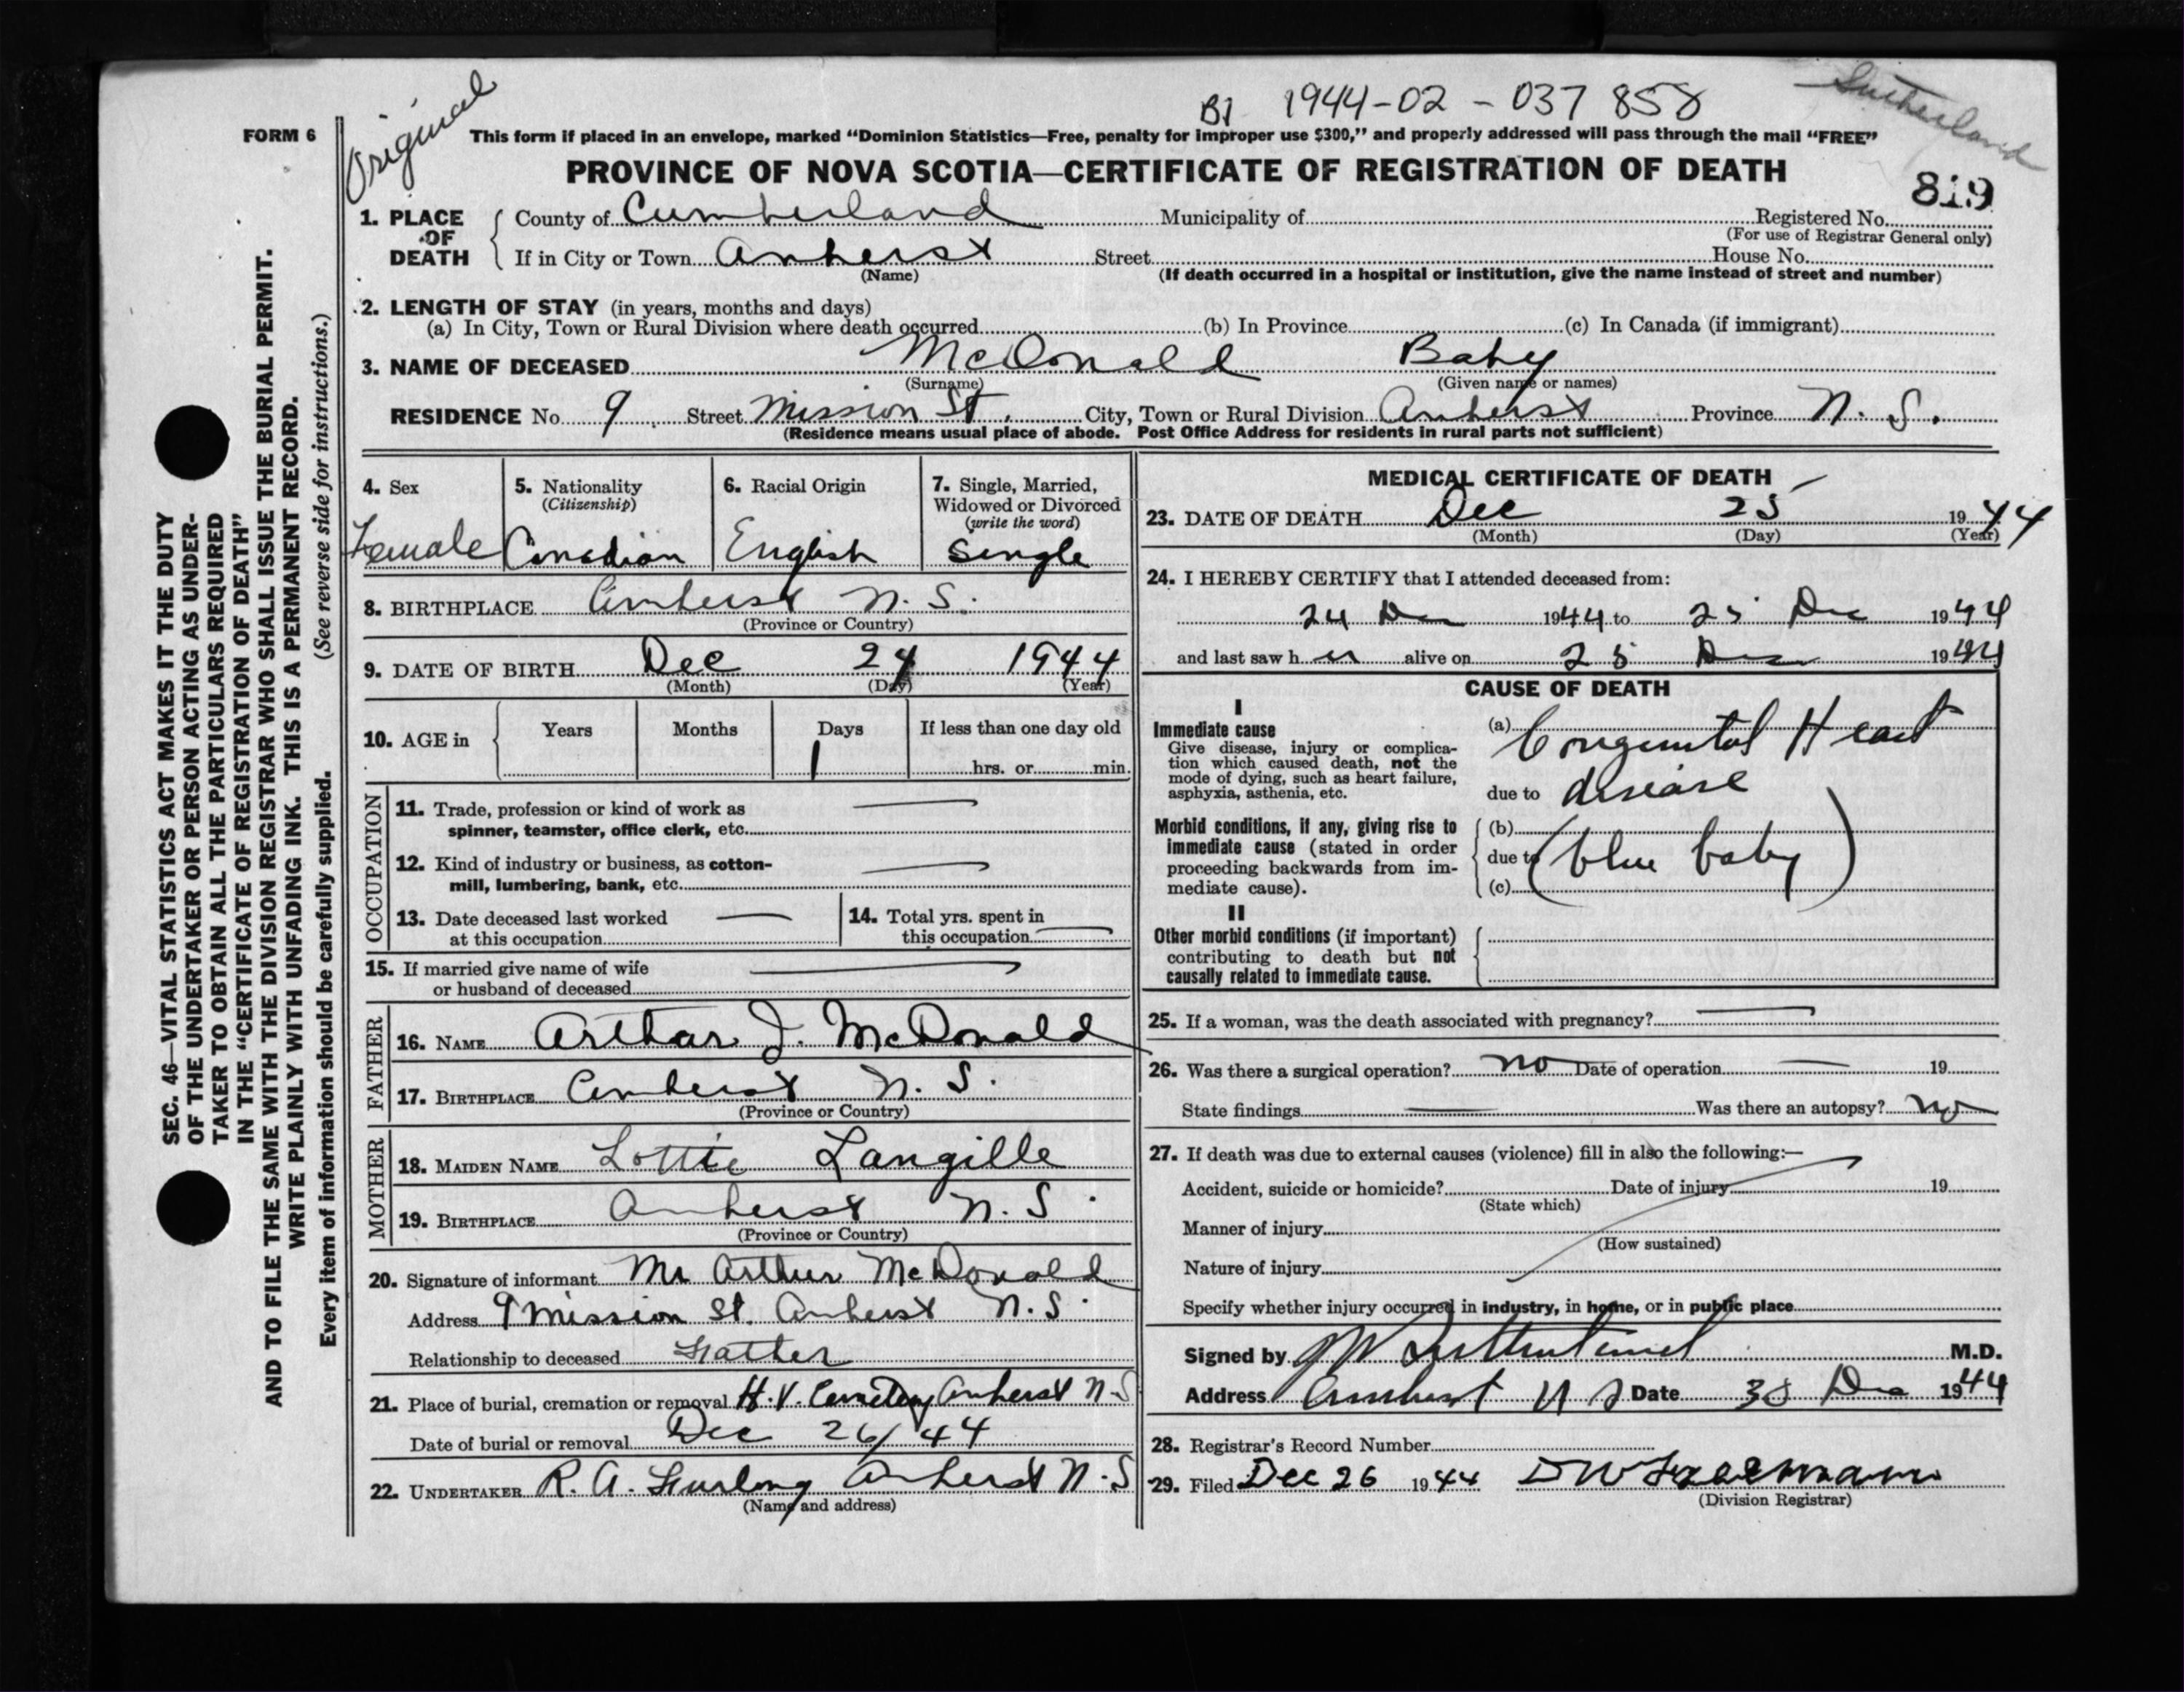 Original
BJ 1944-02-037858
Sutherland
FORM 6
This form if placed in an envelope, marked “Dominion Statistics—Free, penalty for improper use $300,” and properly addressed will pass through the mail “FREE”
PROVINCE OF NOVA SCOTIA—CERTIFICATE OF REGISTRATION OF DEATH
819
1. PLACE OF DEATH County of Cumberland Municipality of Registered No.
(For use of Registrar General only)
If in City or Town Amherst Street House No.
(Name) (If death occurred in a hospital or institution, give the name instead of street and number)
2. LENGTH OF STAY (in years, months and days)
(a) In City, Town or Rural Division where death occurred (b) In Province (c) In Canada (if immigrant)
3. NAME OF DECEASED McDonald Baby
(Surname) (Given name or names)
RESIDENCE No 9 Street Mission St. City, Town or Rural Division Amherst Province N. S.
(Residence means usual place of abode. Post Office Address for residents in rural parts not sufficient)
4. Sex Female
5. Nationality (Citizenship) Canadian
6. Racial Origin English
7. Single, Married, Widowed or Divorced (write the word) Single
8. BIRTHPLACE Amherst N. S.
(Province or Country)
9. DATE OF BIRTH Dec 24 1944
(Month) (Day) (Year)
10. AGE in Years Months Days If less than one day old
1 hrs. or min.
OCCUPATION
11. Trade, profession or kind of work as
spinner, teamster, office clerk, etc.
12. Kind of industry or business, as cotton-
mill, lumbering, bank, etc.
13. Date deceased last worked
at this occupation
14. Total yrs. spent in
this occupation
15. If married give name of wife
or husband of deceased
FATHER
16. NAME Arthur J. McDonald
17. BIRTHPLACE Amherst N. S.
(Province or Country)
MOTHER
18. MAIDEN NAME Lottie Langille
19. BIRTHPLACE Amherst N. S.
(Province or Country)
20. Signature of informant Mr Arthur McDonald
Address 9 Mission St. Amherst N. S.
Relationship to deceased Father
21. Place of burial, cremation or removal H.V. Cemetery Amherst N-S
Date of burial or removal Dec 26/44
22. UNDERTAKER R. A. Furlong Amherst N.S
(Name and address)
MEDICAL CERTIFICATE OF DEATH
23. DATE OF DEATH Dec 25 1944
(Month) (Day) (Year)
24. I HEREBY CERTIFY that I attended deceased from:
24 Dec 1944 to 25 Dec 1944
and last saw h er alive on 25 Dec 1944
CAUSE OF DEATH
I
Immediate cause
Give disease, injury or complica-
tion which caused death, not the
mode of dying, such as heart failure,
asphyxia, asthenia, etc.
(a) Congenital Heart
due to disease
Morbid conditions, if any, giving rise to
immediate cause (stated in order
proceeding backwards from im-
mediate cause).
(b)
due to (blue baby)
(c)
II
Other morbid conditions (if important)
contributing to death but not
causally related to immediate cause.
25. If a woman, was the death associated with pregnancy?
26. Was there a surgical operation? no Date of operation 19
State findings Was there an autopsy? no
27. If death was due to external causes (violence) fill in also the following:—
Accident, suicide or homicide? Date of injury 19
(State which)
Manner of injury
(How sustained)
Nature of injury
Specify whether injury occurred in industry, in home, or in public place
Signed by M.D.
Address Amherst N S Date Dec 1944
28. Registrar's Record Number
29. Filed Dec 26 1944 D W Freeman
(Division Registrar)
SEC. 46—VITAL STATISTICS ACT MAKES IT THE DUTY
OF THE UNDERTAKER OR PERSON ACTING AS UNDER-
TAKER TO OBTAIN ALL THE PARTICULARS REQUIRED
IN THE “CERTIFICATE OF REGISTRATION OF DEATH”
AND TO FILE THE SAME WITH THE DIVISION REGISTRAR WHO SHALL ISSUE THE BURIAL PERMIT.
WRITE PLAINLY WITH UNFADING INK. THIS IS A PERMANENT RECORD.
Every item of information should be carefully supplied. (See reverse side for instructions.)